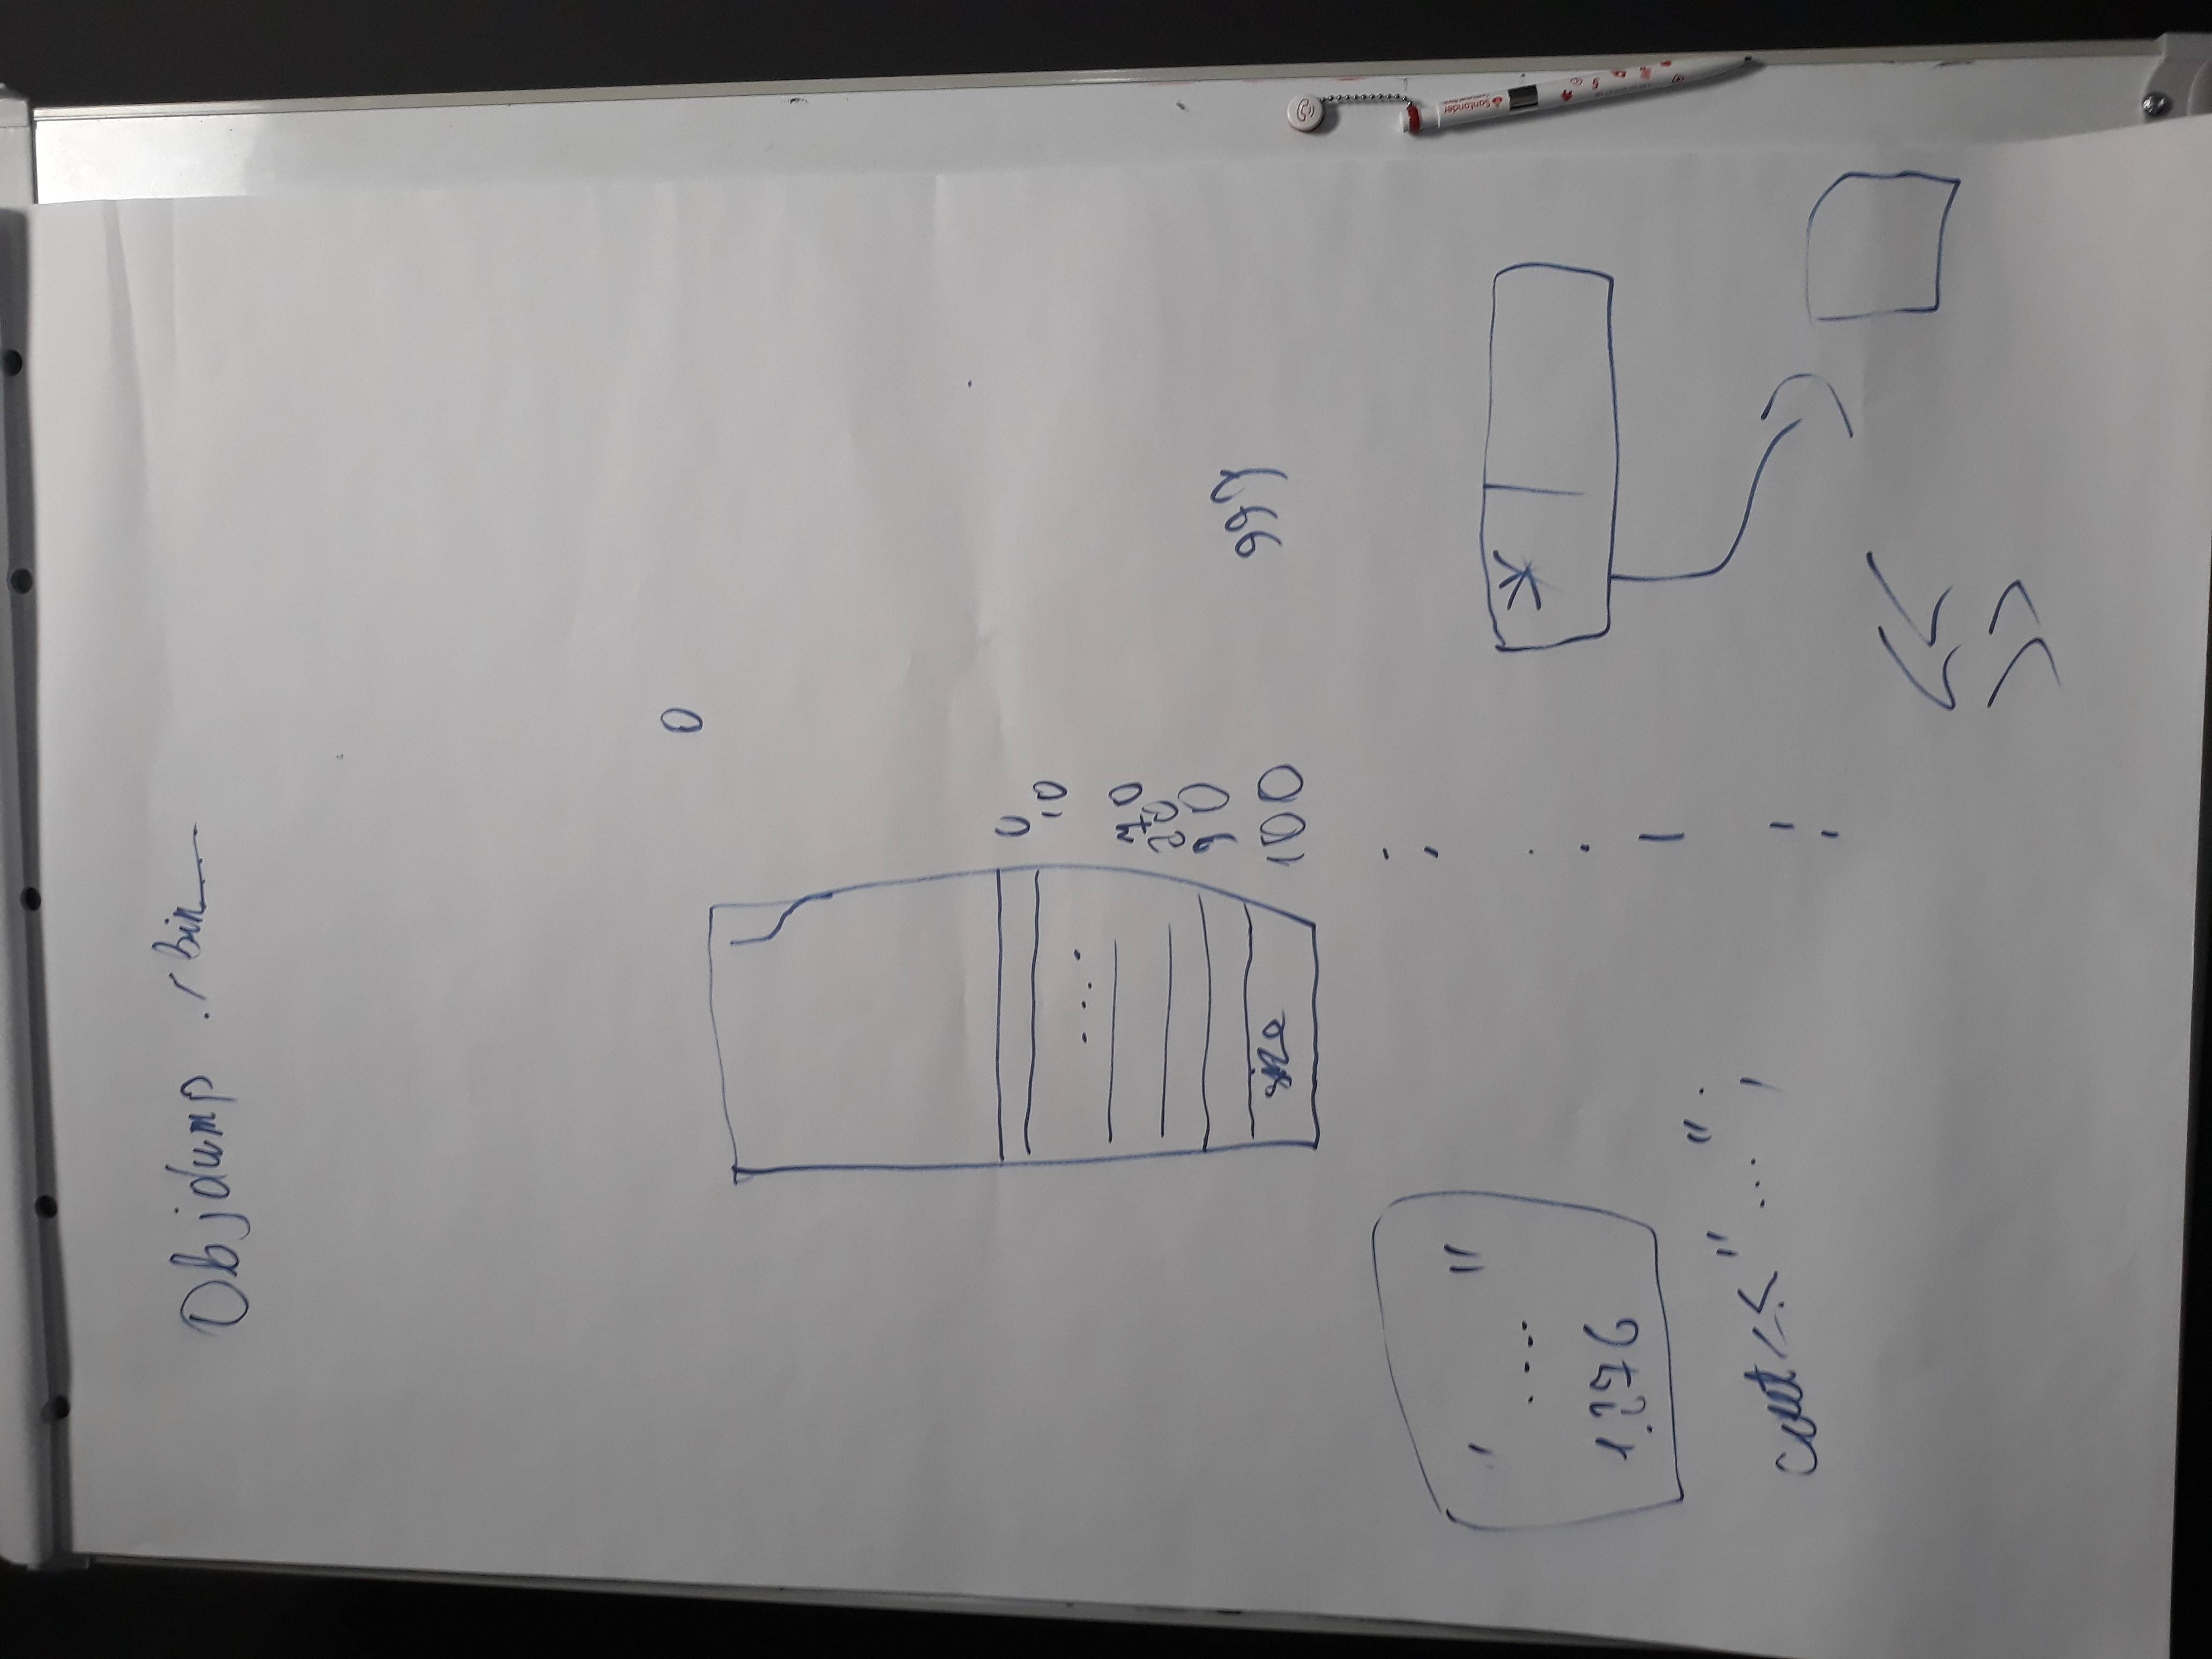 Objdump ./bin
0
0
10
....
70
80
90
size 100
997
" "
....
1.276
cout << "...";
<<
>>
Santander